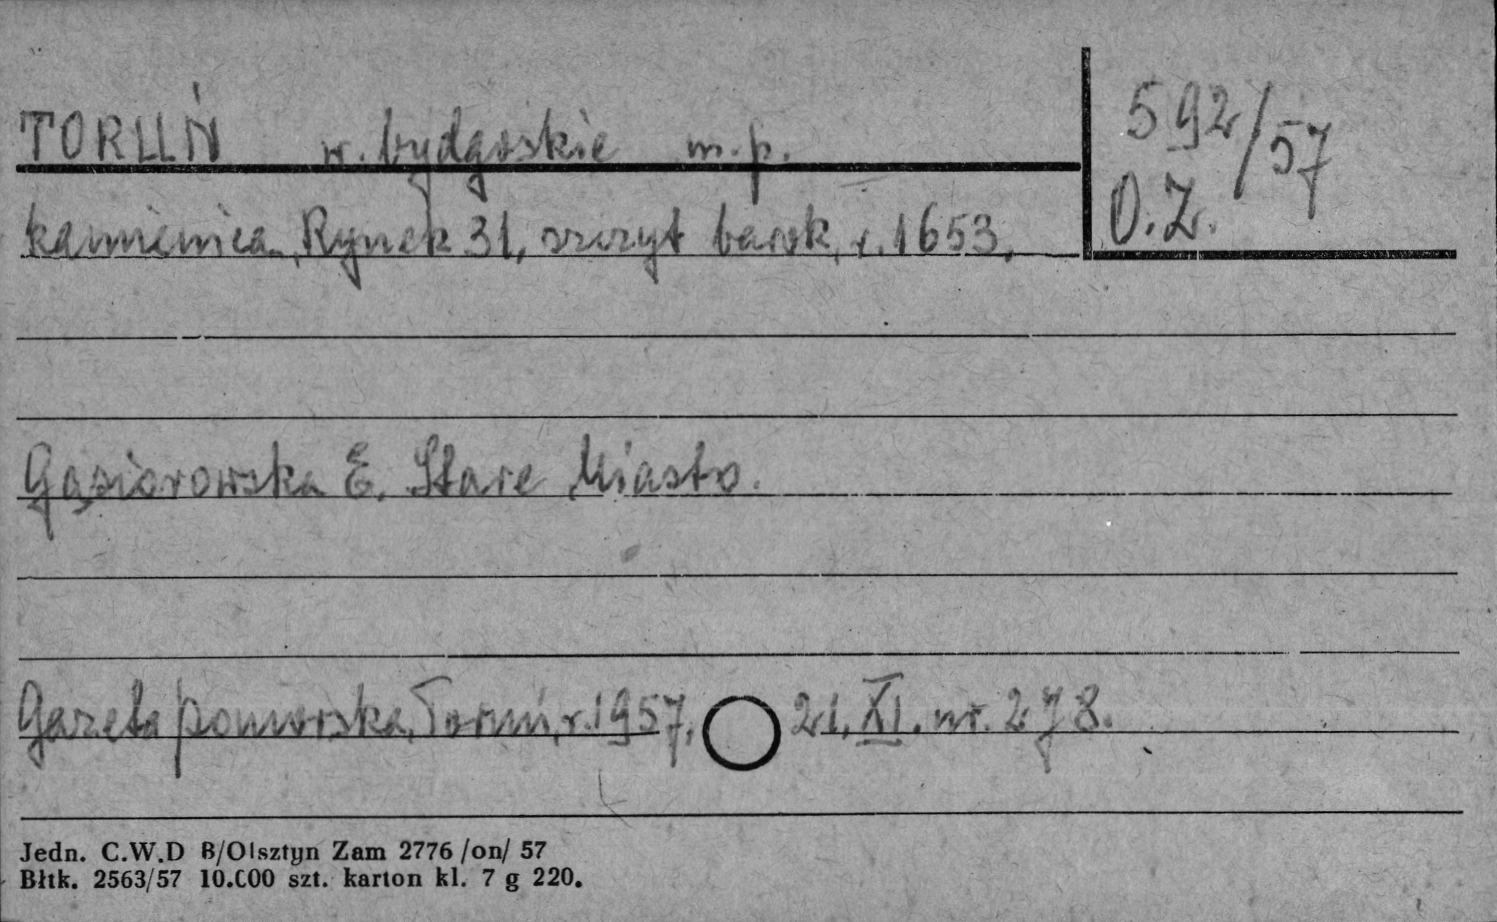 TORUŃ w. bydgoskie m.p.
592/57
O.Z.
kamienica, Rynek 31, szczyt barok, r. 1653.
Gąsiorowska E. Stare Miasto.
Gazeta pomorska, Toruń, r. 1957, 21. XI. nr. 278.
Jedn. C.W.D B/Olsztyn Zam 2776 /on/ 57
Błtk. 2563/57 10.000 szt. karton kl. 7 g 220.